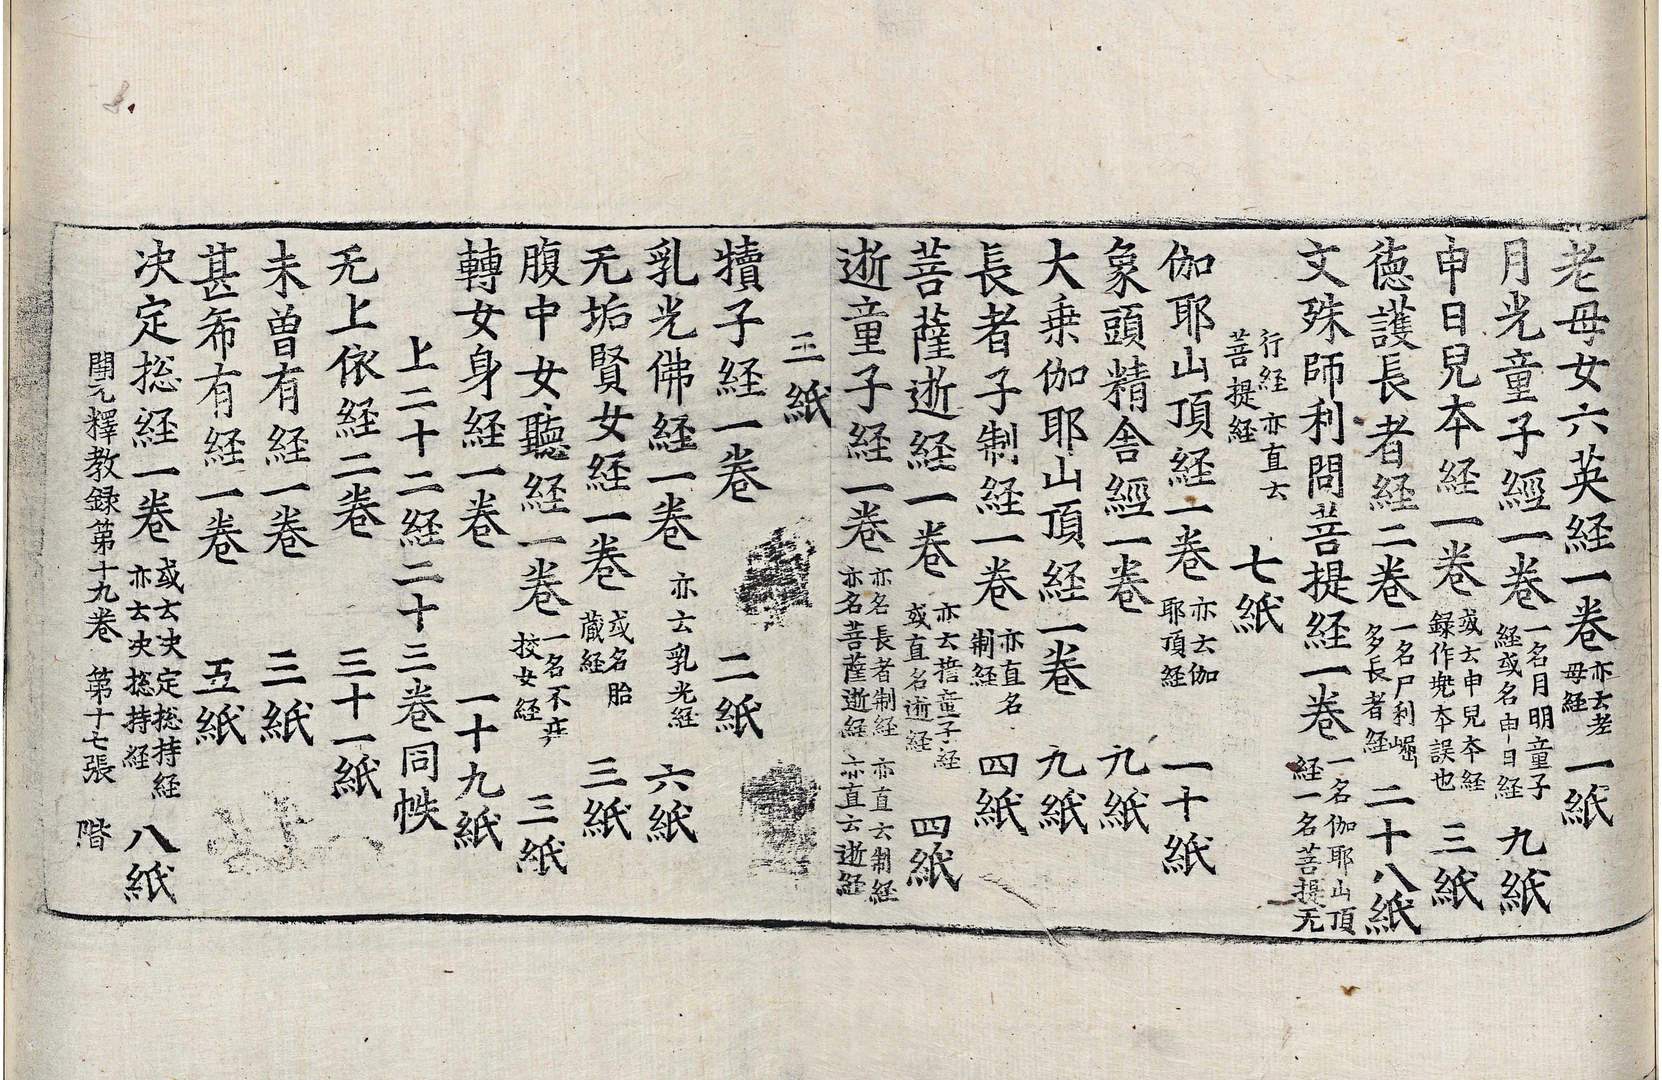 老母女六英経一卷 亦云老母経 一紙
月光童子經一卷 一名月明童子経或名申日経 九紙
申日兒本経一卷 或云申兒本経録作兠本誤也 三紙
徳護長者経二卷 一名尸利崛多長者経 二十八紙
文殊師利問菩提経一卷 一名伽耶山頂経一名菩提无
行経亦直云菩提経 七紙
伽耶山頂経一卷 亦云伽耶頂経 一十紙
象頭精舎經一卷 九紙
大乗伽耶山頂経一卷 九紙
長者子制経一卷 亦直名制経 四紙
菩薩逝経一卷 亦云菩童子経或直名逝経 四紙
逝童子経一卷 亦名長者制経亦名菩薩逝経 亦直云制経亦直云逝経
三紙
犢子経一卷 二紙
乳光佛経一卷 亦云乳光経 六紙
无垢賢女経一卷 或名胎蔵経 三紙
腹中女聽経一卷 一名不莊挍女経 三紙
轉女身経一卷 一十九紙
上二十二経二十三卷同帙
无上依経二卷 三十一紙
未曽有経一卷 三紙
甚希有経一卷 五紙
决定捴経一卷 或云决定捴持経亦云决捴持経 八紙
開元釋教録第十九卷 第十七張 階